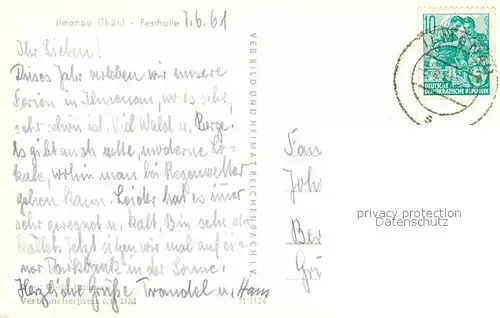 Ilmenau (Thür.) - Festhalle 7.6.61
Ihr Lieben!
Dieses Jahr verleben wir unsere
Ferien in Ilmenau, wo es sehr,
sehr schön ist. Viel Wald u. Berge.
Es gibt auch nette, moderne Lo-
kale, wohin man bei Regenwetter
gehen kann. Leider hat es immer
sehr geregnet u. kalt, Bin sehr er-
kältet. Jetzt sitzen wir mal auf ei-
ner Parkbank in der Sonne.
Herzliche Grüße Traudel u. Hans
Verbraucherpreis DM
11 1124
VEB BILD UND HEIMAT REICHENBACH I. V.
10
DEUTSCHE
DEMOKRATISCHE REPUBLIK
ILMENAU
s
Fam
Joh
Ber
privacy protection
Datenschutz